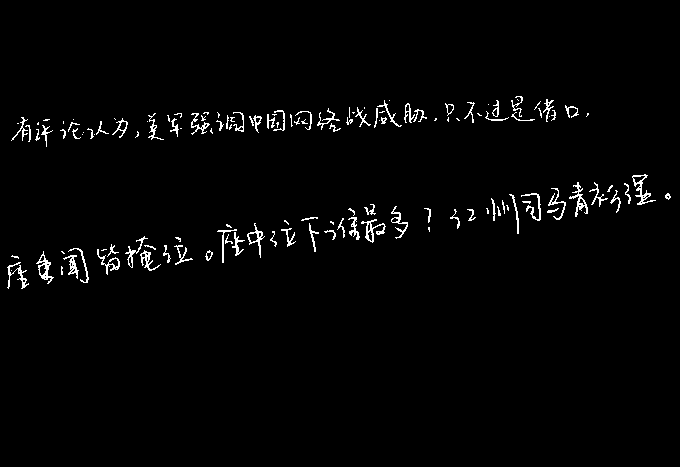 有评论认为,美军强调中国网络战威胁,只不过是借口,
座重闻皆掩泣。座中泣下谁最多?江州司马青衫湿。